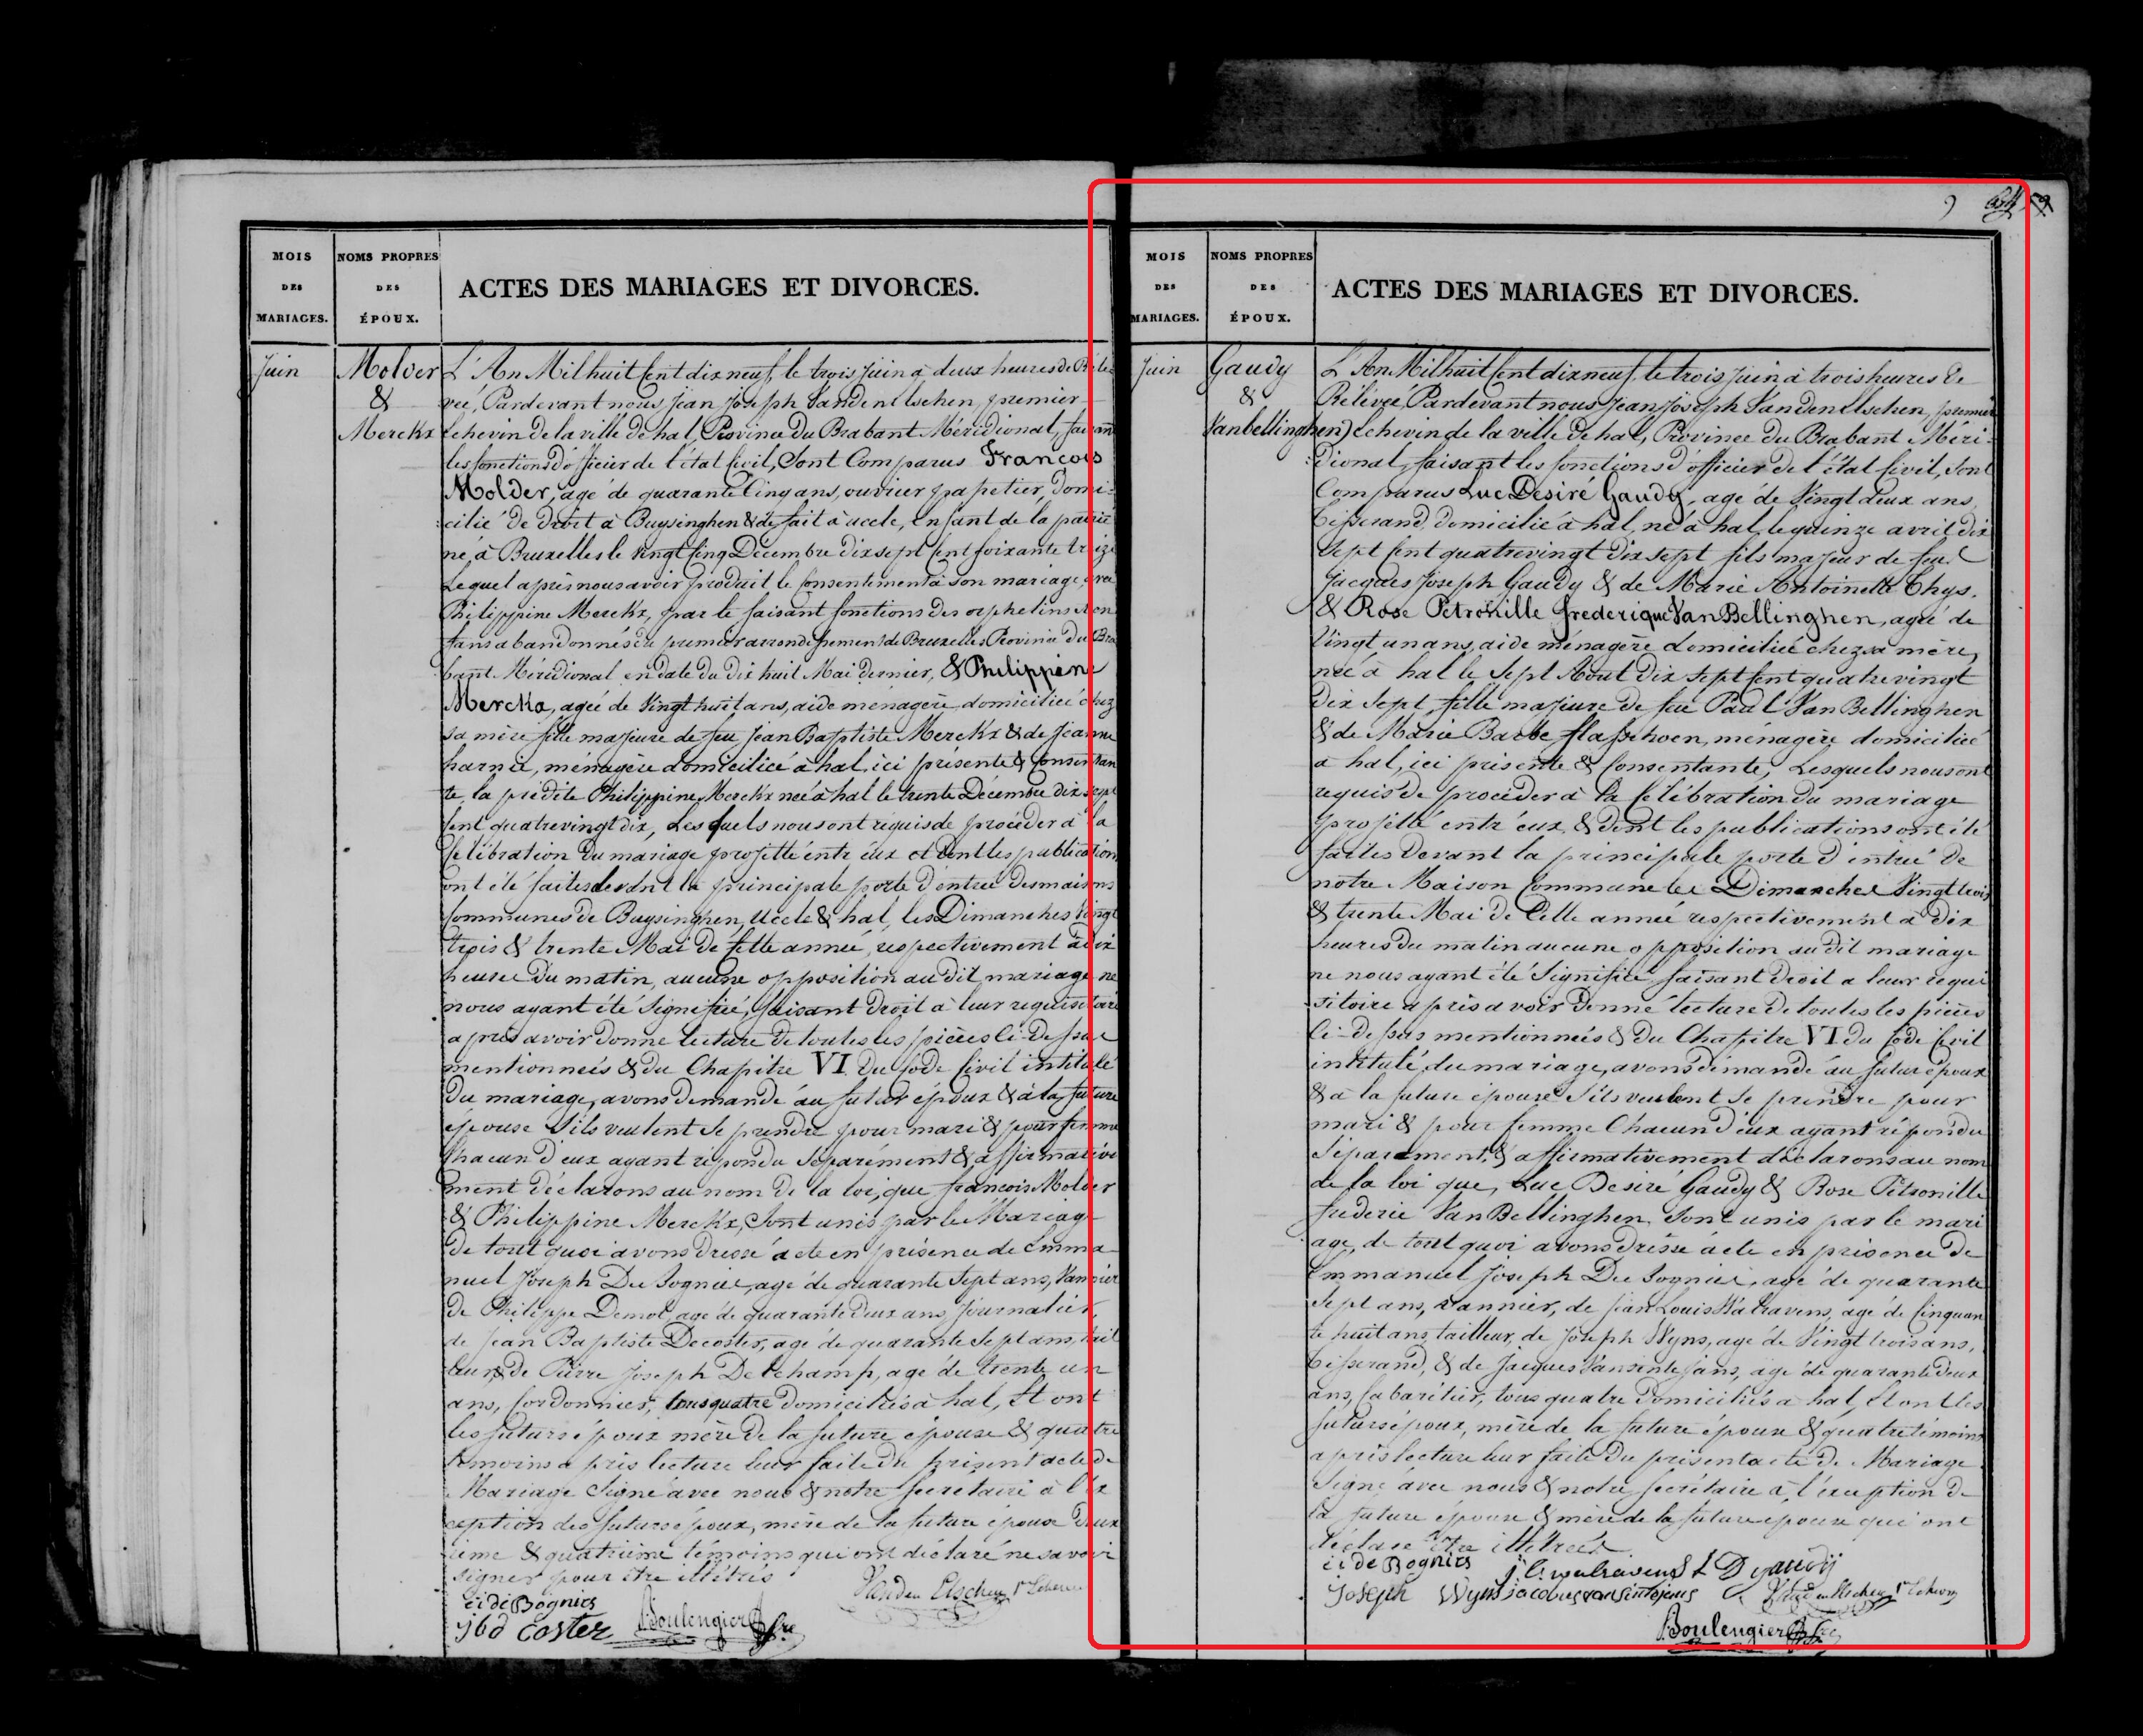 MOIS
DES
MARIAGES.
NOMS PROPRES
DES
ÉPOUX.
ACTES DES MARIAGES ET DIVORCES.
Juin
Molder
&
Merckx
L'An Milhuit Cent dix neuf, le trois Juin à deux heures de Réle
veé, Pardevant nous Jean Joseph Vanden Elschen, premier
Echevin de la ville de hal, Province du Brabant Méridional, faisant
les fonctions d'officier de l'état Civil, Sont Comparus François
Molder, agé de quarante Cinq ans, ouvrier papetier, domi-
cilié de droit à Buysinghen & de fait à uccle, Enfant de la patrie
né, à Bruxelles le Vingt Cinq Décembre dix sept Cent soixante treize
Lequel après nous avoir produit le Consentement à son mariage, avec
Philippine Merckx, par le faisant fonctions des orphelins & en
fans abandonnés du premier arrondissement de Bruxelles Province du Bra
bant Méridional en date du dix huit Mai dernier, & Philippine
Merckx, agée de Vingt huit ans, aide ménagère domiciliée chez
sa mère fille majeure de feu Jean Baptiste Merckx & de Jeanne
harnie, ménagère domiciliée à hal, ici présente & Consentan
te, la prédite Philippine Merckx née à hal le trente Décembre dix sept
Cent quatrevingt dix, Lesquels nous ont réquis de procéder à la
Célébration du mariage projetté entr'eux et dont les publications
ont été faites devant la principale porte d'entrée des maisons
Communes de Buysinghen, Uccle & hal, les Dimanches Vingt
trois & trente Mai de Cette année, respectivement à dix
heures du matin, aucune opposition au dit mariage ne
nous ayant été Signifiée, faisant droit à leur requisitoire
après avoir donné lecture de toutes les pièces Ci-dessus
mentionneés & du Chapitre VI du Code Civil intitulé
du mariage, avons demandé au futur époux & à la future
épouse s'ils veulent se prendre pour mari & pour femme
Chacun d'eux ayant répondu Séparément & affirmative
ment déclarons au nom de la loi, que françois Molder
& Philippine Merckx, Sont unis par le Mariage
De tout quoi avons dressé acte en présence de Emma
nuel Joseph De Bognies, agé de quarante Sept ans, Vannier
de Philippe Demol, agé de quarante deux ans Journalier,
de Jean Baptiste Decoster, agé de quarante Sept ans, tail
leur, & de Pierre Joseph Delchamp, agé de trente un
ans, Cordonnier, tous quatre domiciliés à hal, Et ont
les futurs époux mère de la future épouse & quatre
témoins après lecture leur faite du présent acte de
Mariage Signé avec nous & notre Secrétaire à l'ex
ception des futurs époux, mère de la future épouse deux
ième & quatrième témoins qui ont déclaré ne savoir
signer pour être illétrés
Vanden Elschen 1er Echevin
Ei de Bognies
jbd Coster
Boulengier
MOIS
DES
MARIAGES.
NOMS PROPRES
DES
ÉPOUX.
ACTES DES MARIAGES ET DIVORCES.
Juin
Gaudy
&
Vanbellinghen
L'An Milhuit Cent dix neuf, le trois Juin à trois heures de
Rélevée, Pardevant nous Jean Joseph Vanden Elschen, premier
Echevin de la ville de hal, Province du Brabant Méri-
dional, faisant les fonctions d'officier de l'état Civil, Sont
Comparus Luc Desiré Gaudy, agé de Vingt deux ans,
Tisserand, domicilié à hal, né à hal, le quinze avril dix
Sept Cent quatrevingt dix sept fils majeur de feu
Jacques Joseph Gaudy & de Marie Antoinette Thys.
& Rose Pétronille frederique Van Bellinghen, agée de
Vingt un ans, aide ménagère domiciliée chez sa mère,
née à hal le Sept Aout Dix Sept Cent quatrevingt
Dix Sept, fille majeure de feu Paul Van Bellinghen
& de Marie Barbe flasschoen, ménagère domiciliée
à hal, ici présente & Consentante, Lesquels nous ont
requis de procéder à la Célébration du mariage
projetté entr'eux & dont les publications ont été
faites devant la principale porte d'entrée de
notre Maison Commune les Dimanches Vingt trois
& trente Mai de Cette année respectivement à dix
heures du matin aucune opposition au dit mariage
ne nous ayant été Signifiée faisant droit a leur requi
sitoire après avoir donné lecture de toutes les pièces
Ci-dessus mentionnées & du Chapitre VI du Code Civil
intitulé du mariage, avons demandé au futur époux
& à la future épouse s'ils veulent se prendre pour
mari & pour femme Chacun d'eux ayant répondu
Séparément, & affirmativement déclarons au nom
de la loi que, Luc Desiré Gaudy & Rose Pétronille
frederic Van Bellinghen, Sont unis par le mari
age, de tout quoi avons dressé acte en présence de
Emmanuel Joseph De Bognies, agé de quarante
Sept ans, Vannier, de Jean Louis Walravens, agé de Cinquan
te huit ans, tailleur, de Joseph Wyns, agé de Vingt trois ans,
Tisserand, & de Jacques Vansintejans, agé de quarante deux
ans, Cabarétier, tous quatre domiciliés à hal, Et ont les
futurs époux, mère de la future épouse & quatre témoins
après lecture leur faite du présent acte de Mariage
Signé avec nous & notre Secrétaire à l'exception de
la future épouse & mère de la future épouse qui ont
déclaré être illétrées
ei de Bognies j l walravens L D gaudij
Joseph Wyns jacobus vansintejans Vanden Elschen 1er Echevin
Boulengier